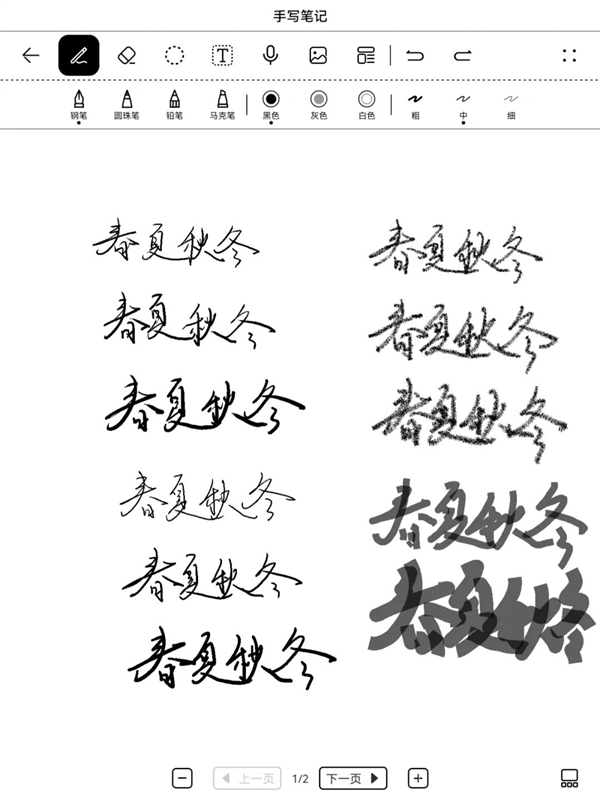 手写笔记
T
钢笔 圆珠笔 铅笔 马克笔 黑色 灰色 白色 粗 中 细
春夏秋冬
春夏秋冬
春夏秋冬
春夏秋冬
春夏秋冬
春夏秋冬
春夏秋冬
春夏秋冬
春夏秋冬
春夏秋冬
春夏秋冬
上一页 1/2 下一页